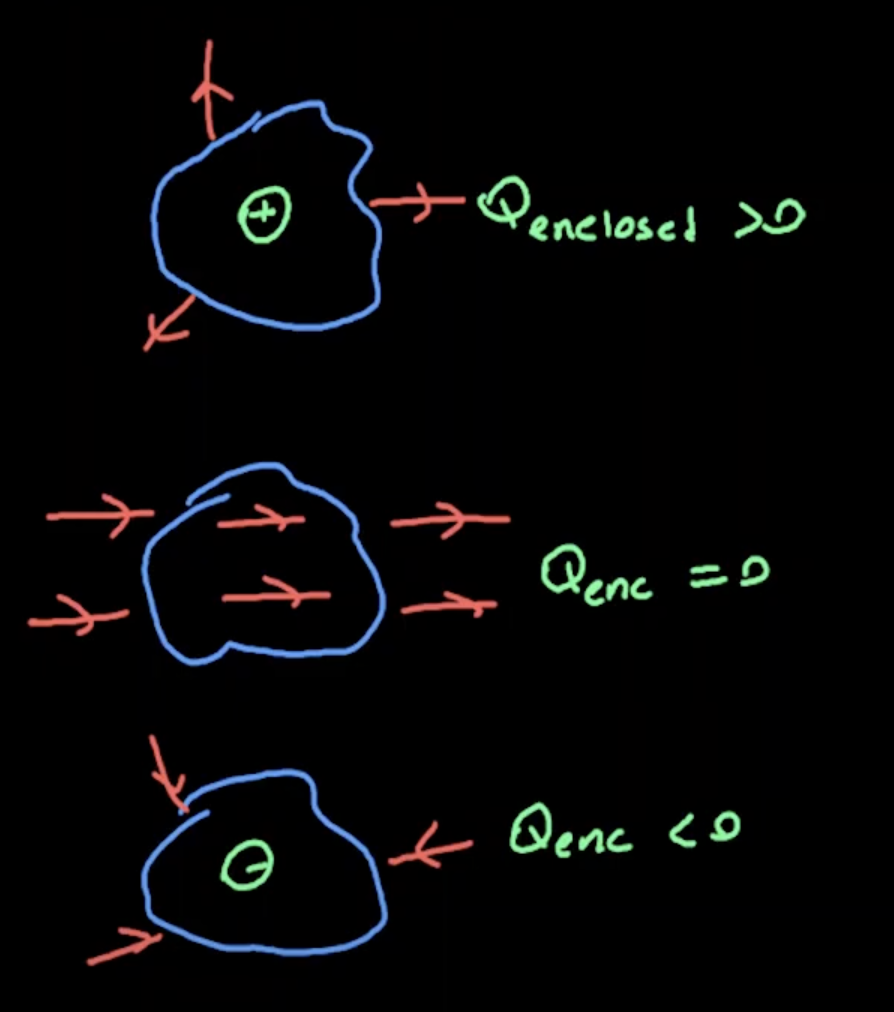 +
Qenclosed >0
Qenc = 0
-
Qenc < 0